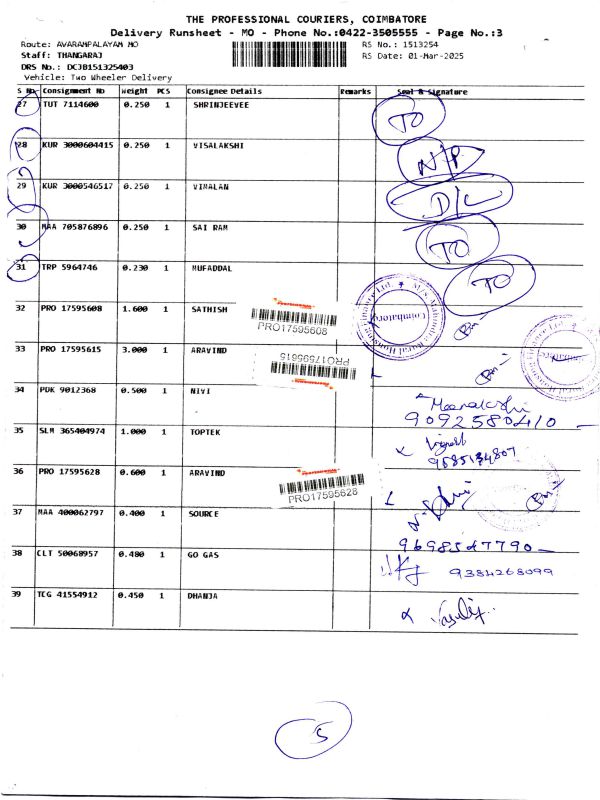 THE PROFESSIONAL COURIERS, COIMBATORE
Delivery Runsheet - MO - Phone No.:0422-3505555 - Page No.:3
Route: AVARAMPALAYAM MO RS No.: 1513254
Staff: THANGARAJ RS Date: 01-Mar-2025
DRS No.: DCJB151325403
Vehicle: Two Wheeler Delivery
S No Consignment No Weight PCS Consignee Details Remarks Seal & Signature
27 TUT 7114600 0.250 1 SHRINJEEVEE TO
28 KUR 3000604415 0.250 1 VISALAKSHI N/P
29 KUR 3000546517 0.250 1 VIMALAN D/L
30 MAA 705876896 0.250 1 SAI RAM TO
31 TRP 5964746 0.230 1 MUFADDAL TO
32 PRO 17595608 1.600 1 SATHISH
PRO17595608
Coimbatore
33 PRO 17595615 3.000 1 ARAVIND
PRO17595615
34 PDK 9012368 0.500 1 NIVI
Meenakshi
9092580410
35 SLM 365404974 1.000 1 TOPTEK
9585134807
36 PRO 17595628 0.600 1 ARAVIND
PRO17595628
37 MAA 400062797 0.400 1 SOURCE
9698547790
38 CLT 50068957 0.480 1 GO GAS
9384268099
39 TCG 41554912 0.450 1 DHANJA
5